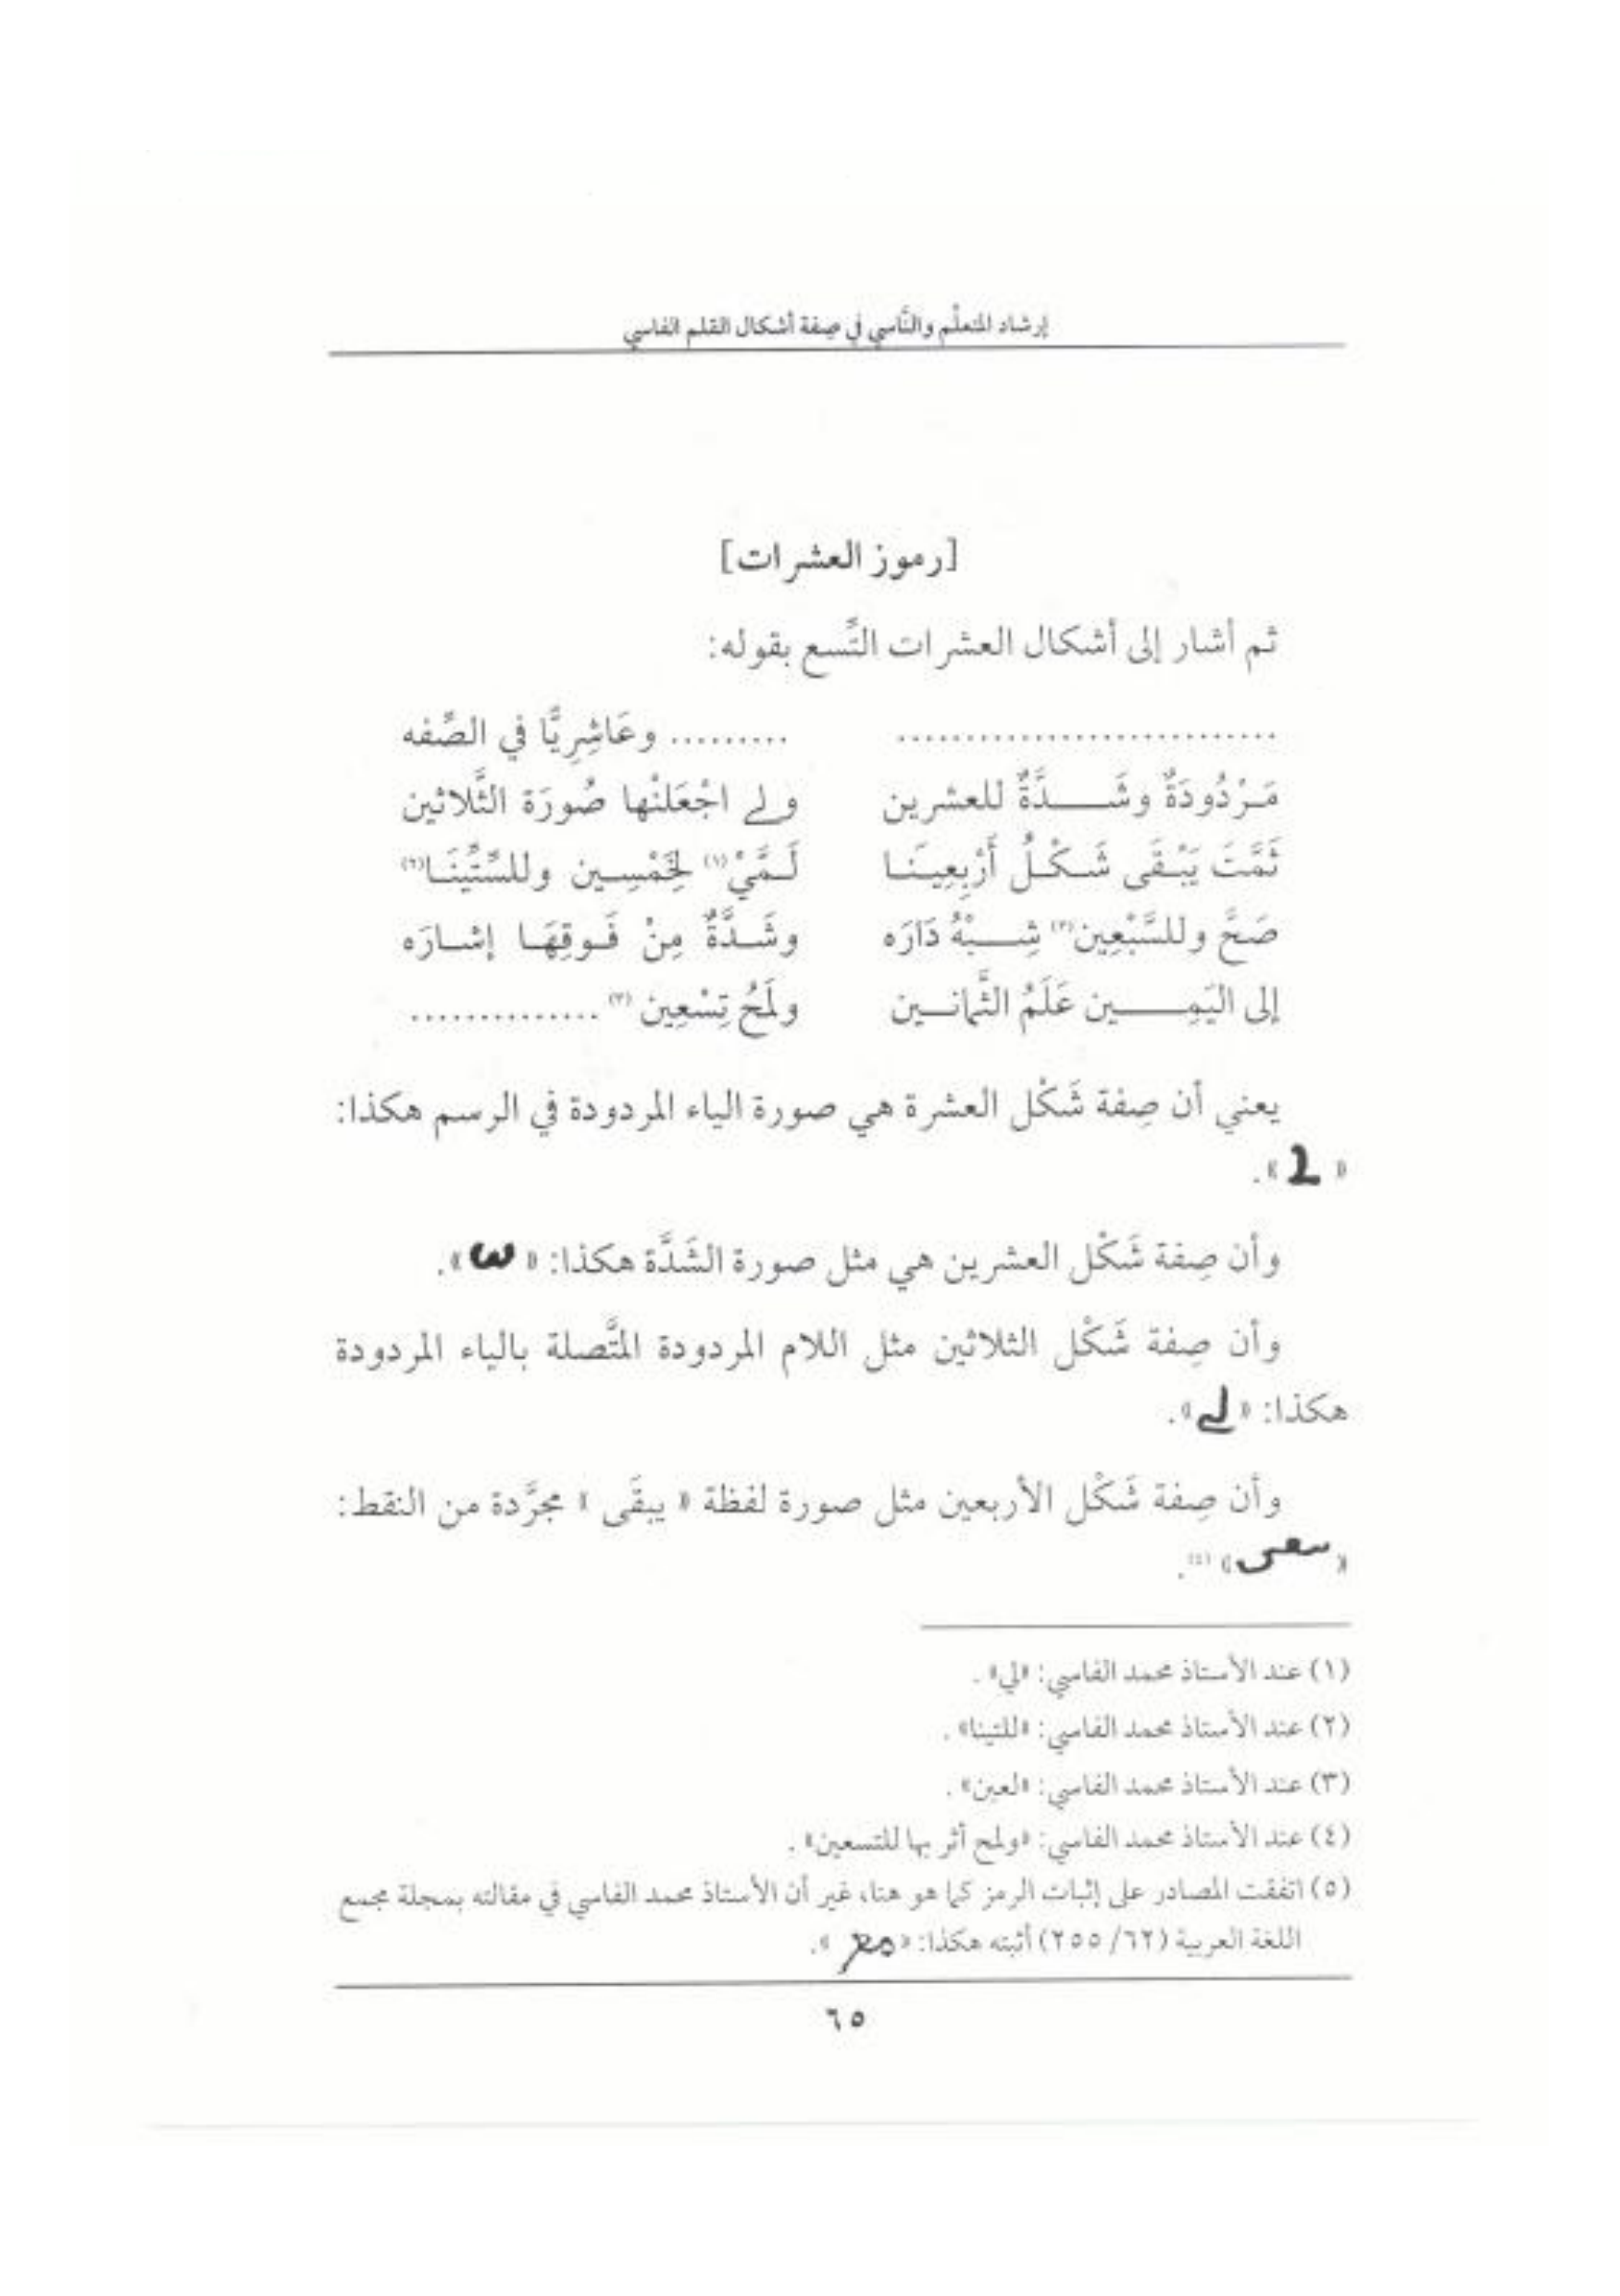 إرشاد المتعلّم والنَّاسي في صفة أشكال القلم الفاسي
[رموز العشرات]
ثم أشار إلى أشكال العشرات التِّسع بقوله:
............................ ......... وعَاشِرِيًّا في الصِّفه
مَرْدُودَةٌ وشَدَّةٌ للعشرين ولے اجْعَلنْها صُورَة الثَّلاثين
ثَمَّتَ يَبْقَى شَكْلُ أَرْبِعِيَنا لَمَّيْ(١) لِخَمْسِين وللسِّتِّينَا(٢)
صَحَّ وللسَّبْعِين(٣) شِبْهُ دَارَه وشَدَّةٌ مِنْ فَوقِهَا إشارَه
إلى اليَمِين عَلَمُ الثَّمانين ولَمَحُ تِسْعِين (٣) ..............
يعني أن صِفة شَكْل العشرة هي صورة الياء المردودة في الرسم هكذا:
« ».
وأن صِفة شَكْل العشرين هي مثل صورة الشَدَّة هكذا: « ».
وأن صِفة شَكْل الثلاثين مثل اللام المردودة المتَّصلة بالياء المردودة
هكذا: «لے».
وأن صِفة شَكْل الأربعين مثل صورة لفظة « يبقَى » مجرَّدة من النقط:
« » (٤).
(١) عند الأستاذ محمد الفاسي: «لي» .
(٢) عند الأستاذ محمد الفاسي: «للتينا» .
(٣) عند الأستاذ محمد الفاسي: «لعين» .
(٤) عند الأستاذ محمد الفاسي: «ولمح أثر بها للتسعين» .
(٥) اتفقت المصادر على إثبات الرمز كما هو هنا، غير أن الأستاذ محمد الفاسي في مقالته بمجلة مجمع
اللغة العربية (٦٢/ ٢٥٥) أثبته هكذا: « ».
٦٥